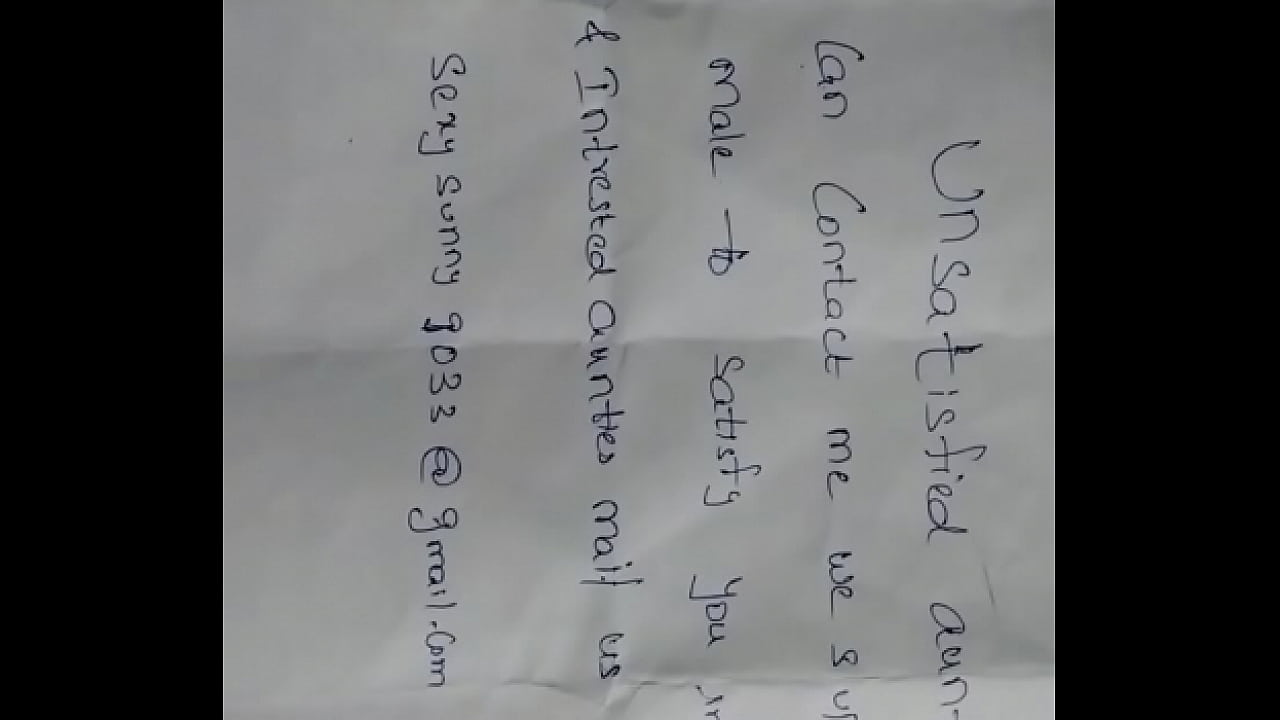 Unsatisfied aun-
Can Contact me we sup
male to satisfy you in
& Intrested aunties mail us
Sexy sunny 9033@gmail.com